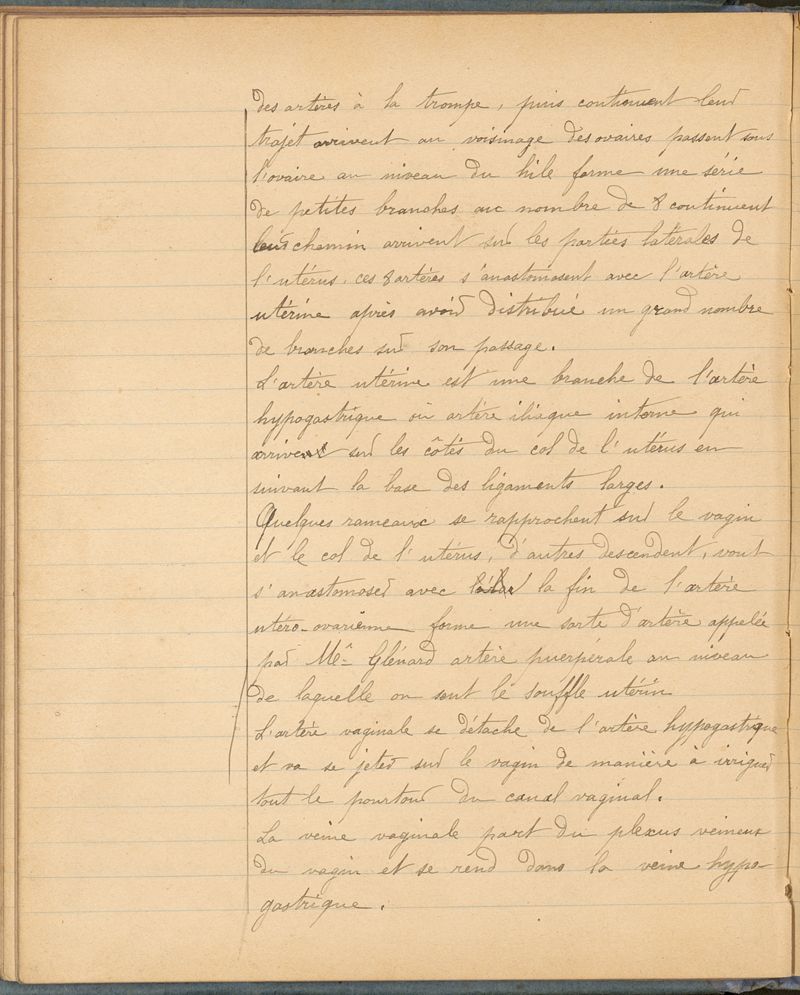 des artères à la trompe, puis continuent leur
trajet arrivent au voisinage des ovaires passent sous
l'ovaire au niveau du hile forme une série
de petites branches au nombre de 8 continuent
leur chemin arrivent sur les parties latérales de
l'utérus. ces 8 artères s'anastomosent avec l'artère
utérine après avoir distribué un grand nombre
de branches sur son passage.
L'artère utérine est une branche de l'artère
hypogastrique ou artère iliaque interne qui
arrivent sur les côtés du col de l'utérus en
suivant la base des ligaments larges.
Quelques rameaux se rapprochent sur le vagin
et le col de l'utérus, d'autres descendent, vont
s'anastomoser avec la fin de l'artère
utéro-ovarienne forme une sorte d'artère appelée
par Mr Glénard artère puerpérale au niveau
de laquelle on sent le souffle utérin
L'artère vaginale se détache de l'artère hypogastrique
et va se jeter sur le vagin de manière à irriguer
tout le pourtour du canal vaginal.
La veine vaginale part du plexus veineux
du vagin et se rend dans la veine hypo-
gastrique.